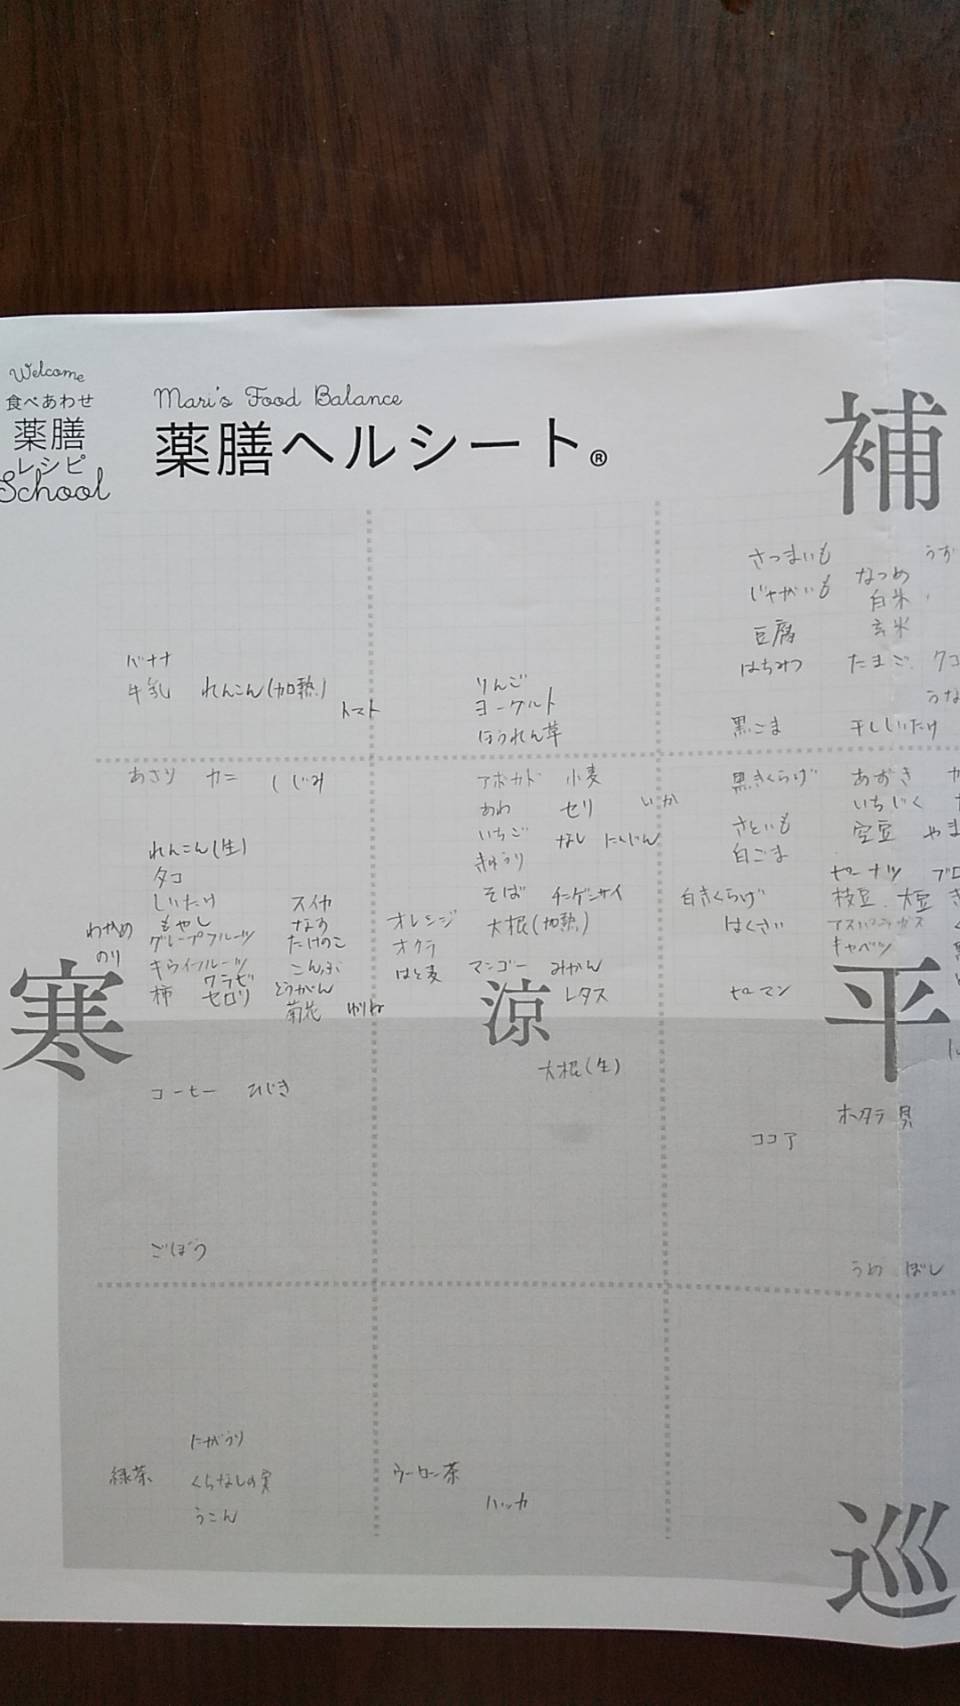 Welcome
食べあわせ
薬膳
レシピ
School
Mari's Food Balance
薬膳ヘルシート®
補
さつまいも
なつめ
じゃがいも
白米
豆腐
玄米
はちみつ たまご クコ
黒ごま 干ししいたけ
バナナ
牛乳 れんこん(加熱)
トマト
りんご
ヨーグルト
ほうれん草
あさり カニ しじみ
れんこん(生)
タコ
しいたけ スイカ
わかめ もやし なす
のり グレープフルーツ たけのこ
キウイフルーツ こんぶ
ワラビ
柿 セロリ とうがん
菊花 ゆりね
アボカド 小麦
あわ セリ いか
いちご なし にんじん
きゅうり
そば チンゲンサイ
オレンジ 大根(加熱)
オクラ
はと麦 マンゴー みかん
レタス
黒きくらげ あずき
いちじく
さといも 空豆 やま
白ごま
ピーナツ ブロ
白きくらげ 枝豆、大豆
はくさい アスパラガス
キャベツ
ピーマン
寒
涼
平
コーヒー ひじき
大根(生)
ホタテ貝
ココア
ごぼう
うめぼし
にがうり
緑茶 くちなしの実
うこん
ウーロン茶
ハッカ
巡